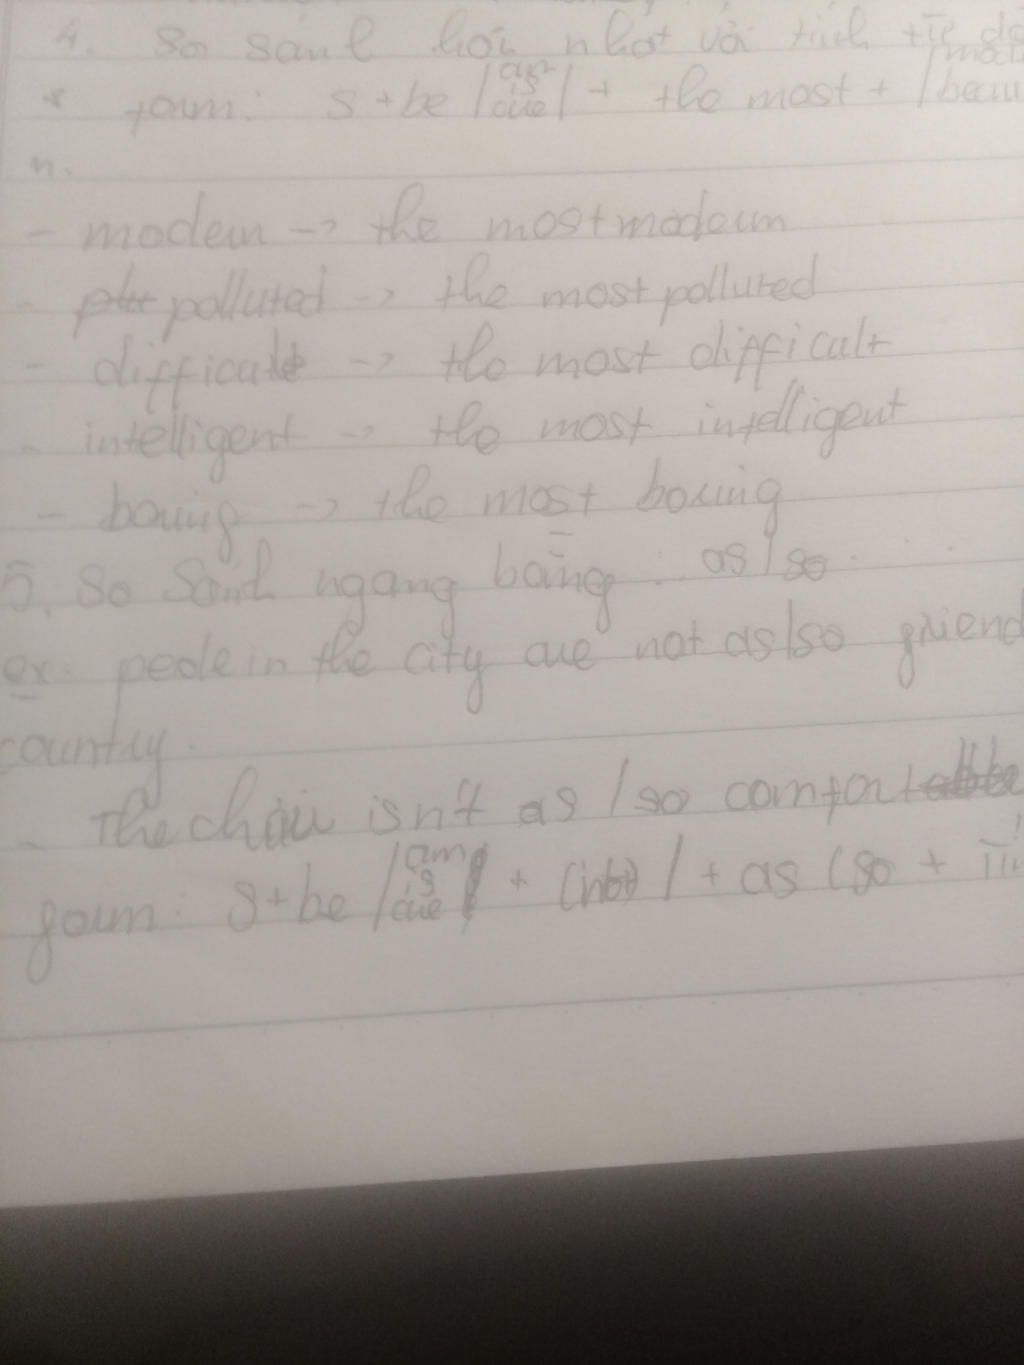 4. So sánh hơn nhất với tính từ
* form: S + be / am is are / + the most +
n.
- modern -> the most modern
- polluted -> the most polluted
- difficult -> the most difficult
- intelligent -> the most intelligent
- boring -> the most boring
5. So sánh ngang bằng : as / so
ex: in the city are not as / so friend
country.
- The chair isn't as / so comfortable
form: S + be / am is are / + (not) / + as / so +